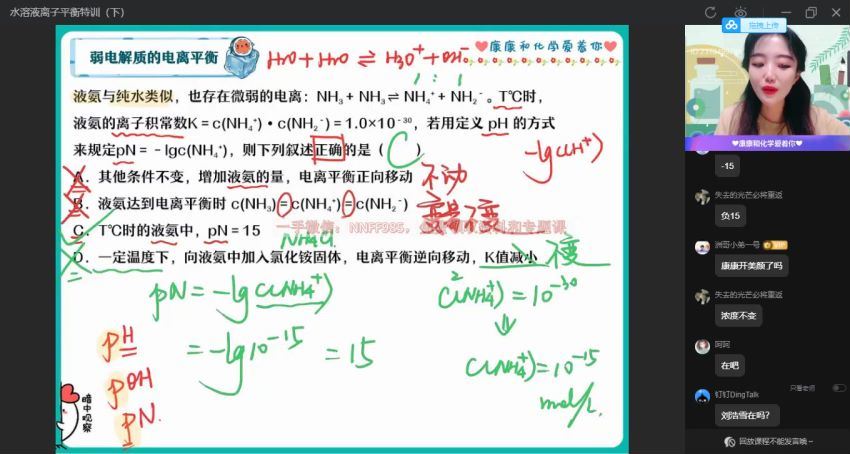 水溶液离子平衡特训（下）
拖拽上传
弱电解质的电离平衡
H₂O + H₂O ⇌ H₃O⁺ + OH⁻
康康和化学爱着你
1 : 1
液氨与纯水类似，也存在微弱的电离：NH₃ + NH₃ ⇌ NH₄⁺ + NH₂⁻。T℃时，
液氨的离子积常数K = c(NH₄⁺)·c(NH₂⁻) = 1.0×10⁻³⁰，若用定义 pH 的方式
来规定pN = －lgc(NH₄⁺)，则下列叙述正确的是（ C ）
-lgc(H⁺)
A．其他条件不变，增加液氨的量，电离平衡正向移动
不动
B．液氨达到电离平衡时 c(NH₃)=c(NH₄⁺)=c(NH₂⁻)
不变
C．T℃时的液氨中，pN = 15
一手微信：NNFF985，
和专题课
NH₄Cl
D．一定温度下，向液氨中加入氯化铵固体，电离平衡逆向移动，K值减小
不变
pN = -lg c(NH₄⁺)
= -lg10⁻¹⁵ = 15
c²(NH₄⁺) = 10⁻³⁰
⇓
c(NH₄⁺) = 10⁻¹⁵
mol/L
pH
pOH
pN.
暗中观察
康康和化学爱着你
-15
失去的光芒必将重返
负15
洲哥小弟一号
康康开美颜了吗
失去的光芒必将重返
浓度不变
阿阿
在吧
只看老师
钉钉DingTalk
刘浩雪在吗?
回放课程不能发言噢～